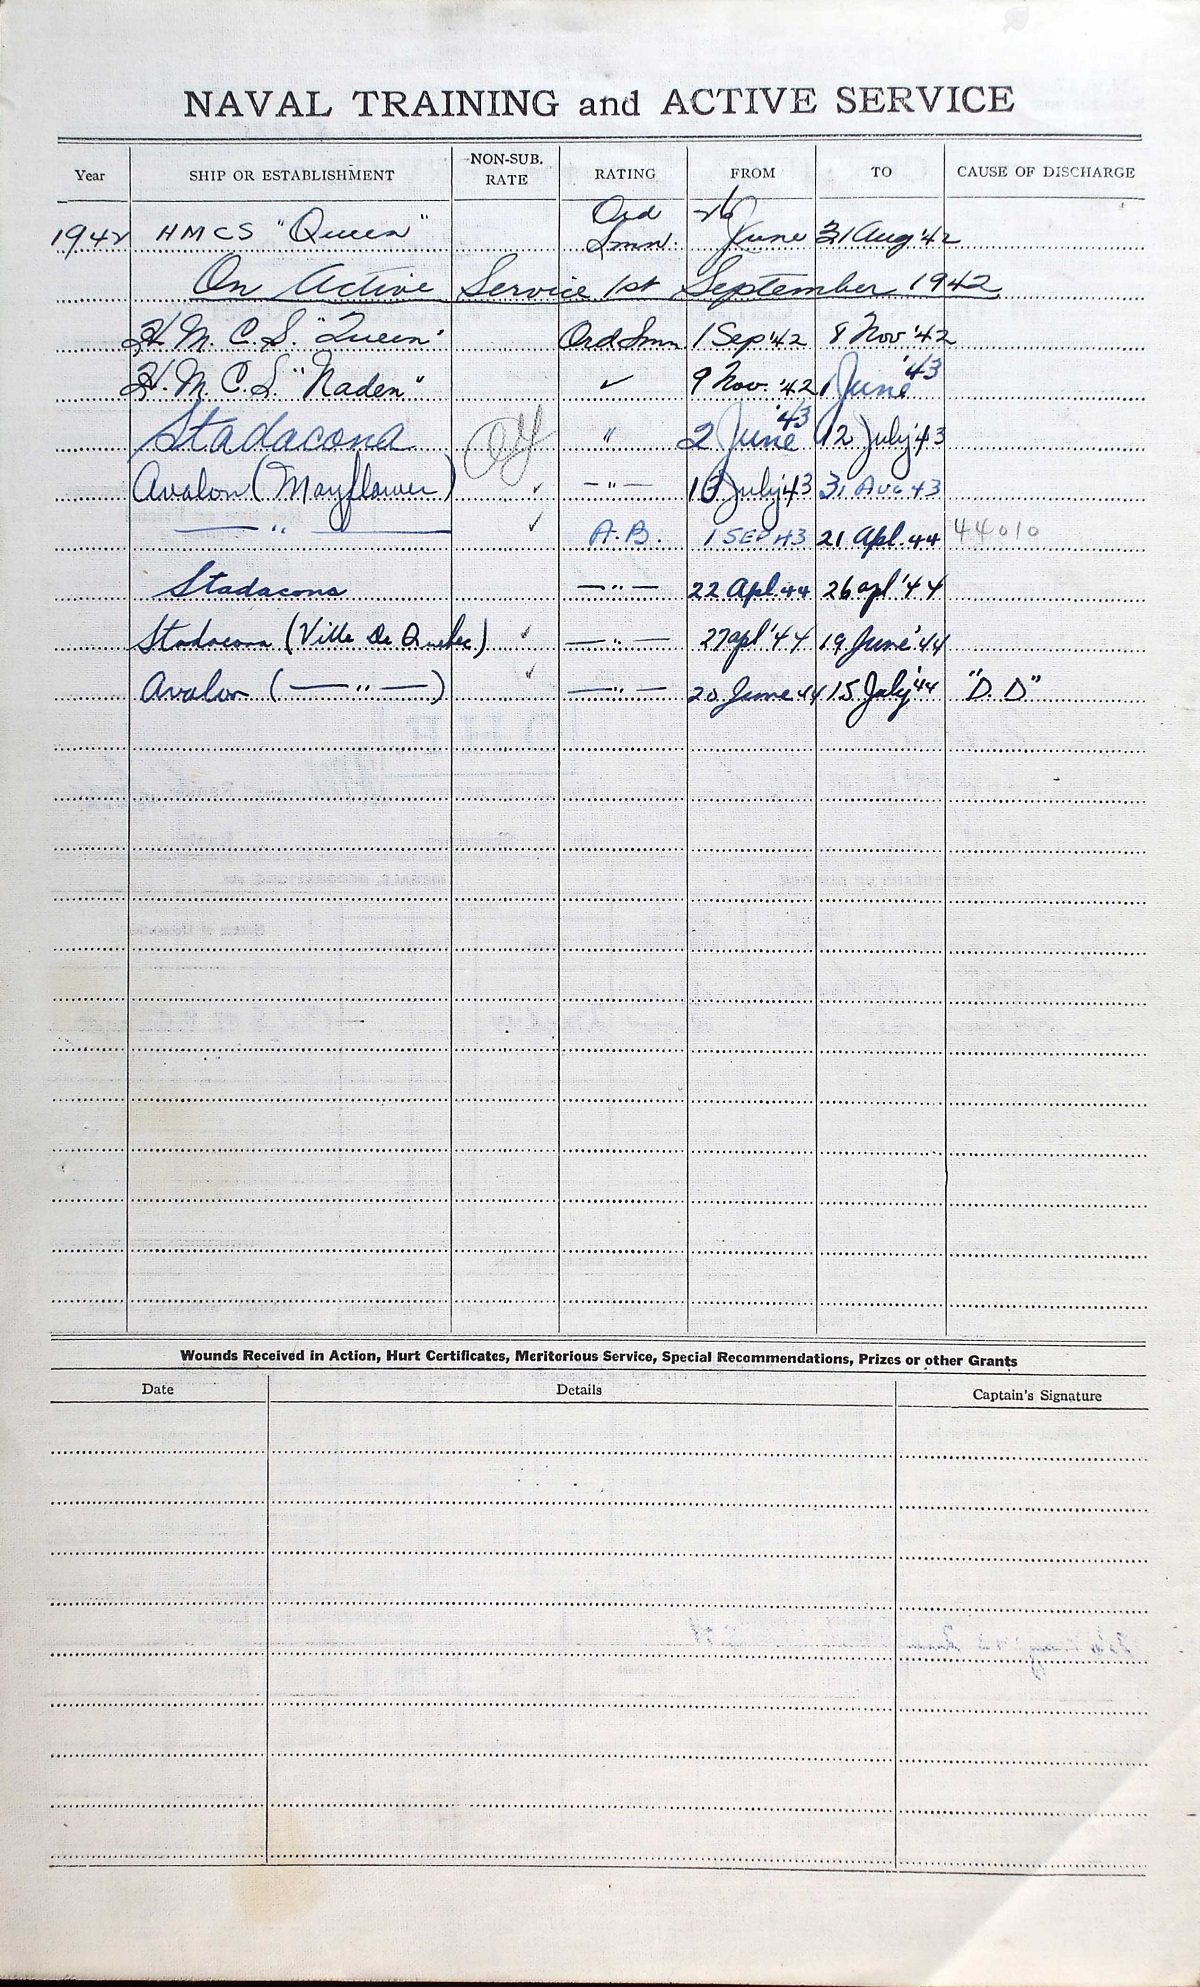 NAVAL TRAINING and ACTIVE SERVICE
Year SHIP OR ESTABLISHMENT NON-SUB. RATE RATING FROM TO CAUSE OF DISCHARGE
1942 HMCS "Queen" Ord Smn. 26 June 31 Aug '42
On Active Service 1st September 1942
H.M.C.S. "Queen" Ord Smn 1 Sep '42 8 Nov '42
H.M.C.S. "Naden" ✓ 9 Nov. '42 1 June '43
Stadacona " 2 June '43 12 July '43
Avalon (Mayflower) ✓ —"— 13 July '43 31 AUG 43
— " — ✓ A.B. 1 SEP 43 21 Apl. 44 44010
Stadacona —"— 22 Apl. 44 26 apl '44
Stadacona (Ville De Quebec) ✓ —"— 27 apl '44 19 June '44
Avalon (—"—) ✓ —"— 20 June 44 15 July '44 "D.D"
Wounds Received in Action, Hurt Certificates, Meritorious Service, Special Recommendations, Prizes or other Grants
Date Details Captain's Signature